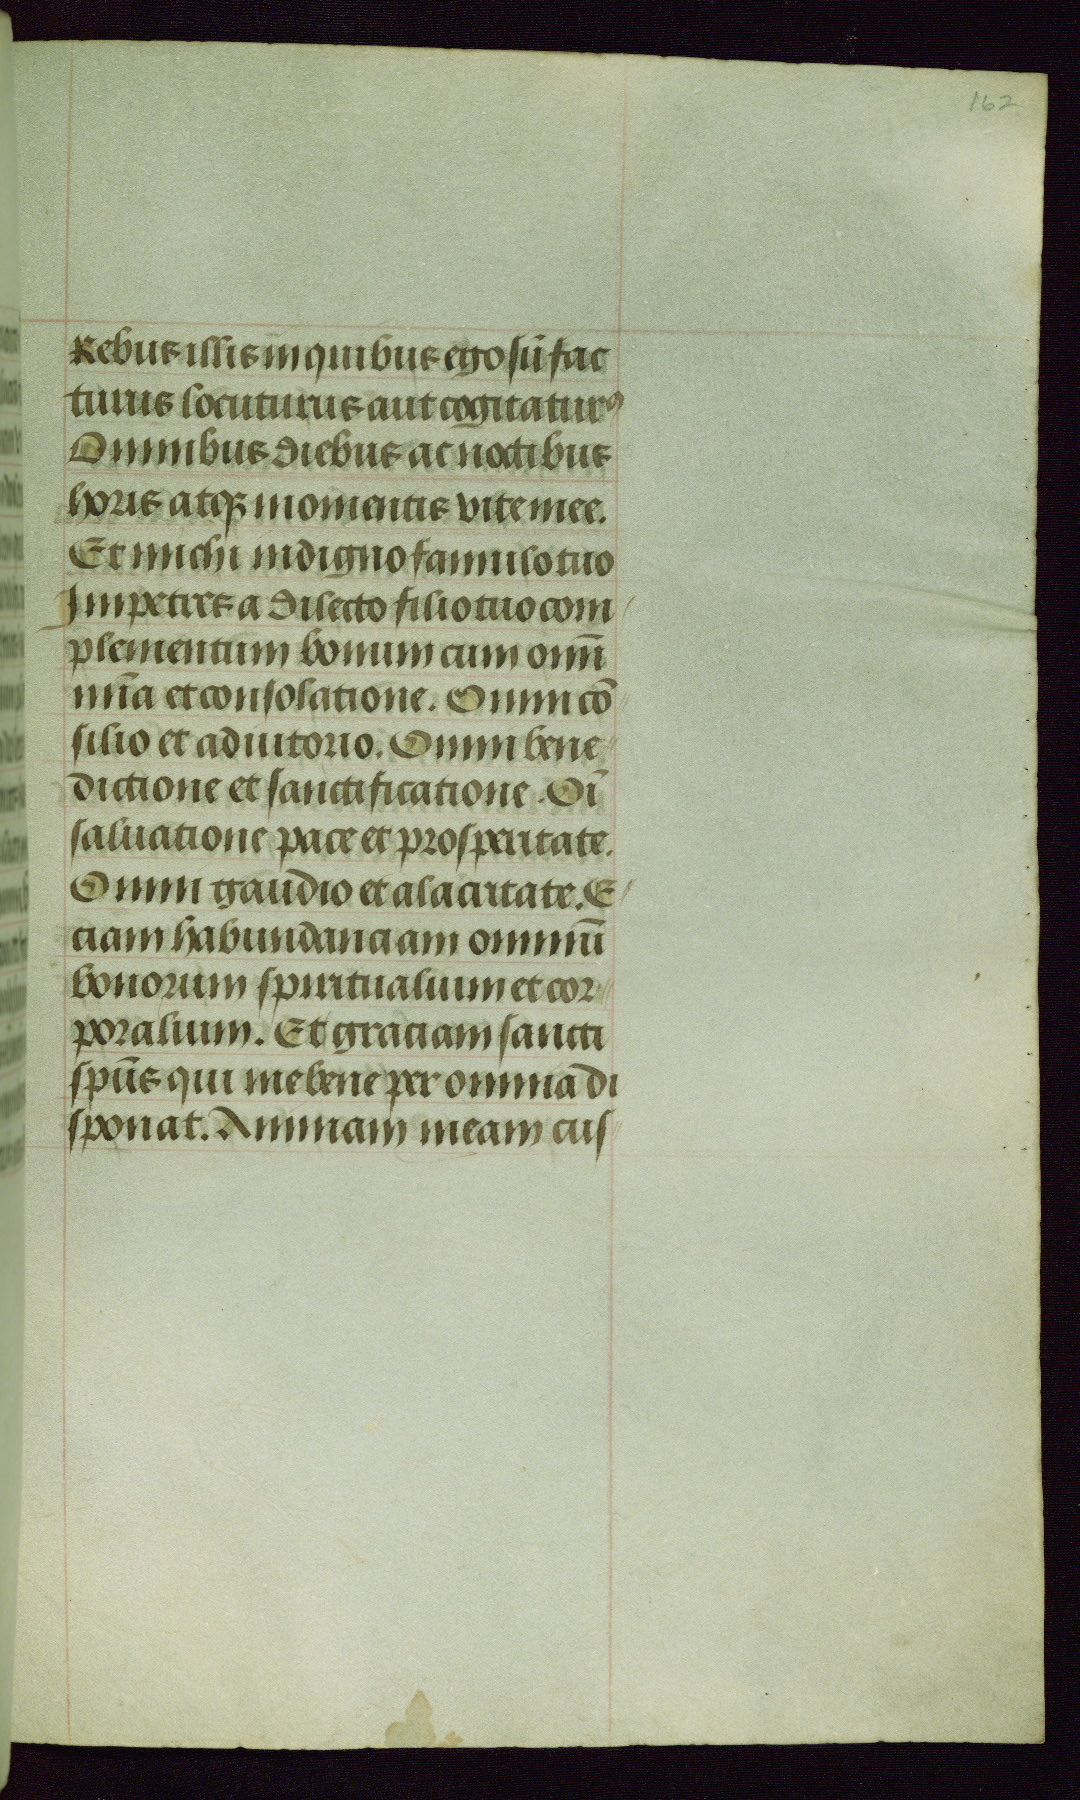 162
Rebus illis in quibus ego sū fac
turus locuturus aut cogitaturꝰ
Omnibus diebus ac noctibus
horis atqꝫ momentis vite mee.
Et michi indigno famulo tuo
Impetres a dilecto filio tuo com
plementum bonum cum omī
mīa et consolatione. Omni cō
silio et adiutorio. Omni bene
dictione et sanctificatione. Oī
saluatione pace et prosperitate.
Omni gaudio et alacritate. E
ciam habundanciam omniū
bonorum spiritualium et cor
poralium. Et graciam sancti
spūs qui me bene per omnia di
sponat. Animam meam cus